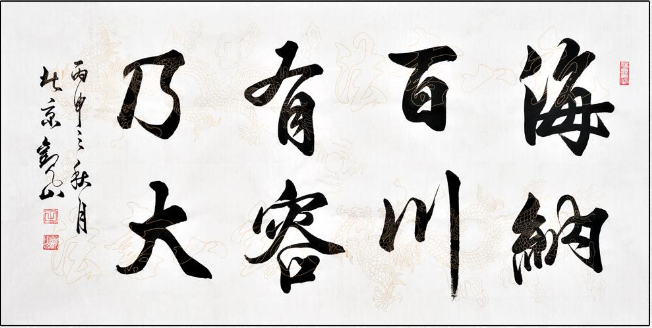 海納
百川
有容
乃大
丙申之秋月
北京劉火山